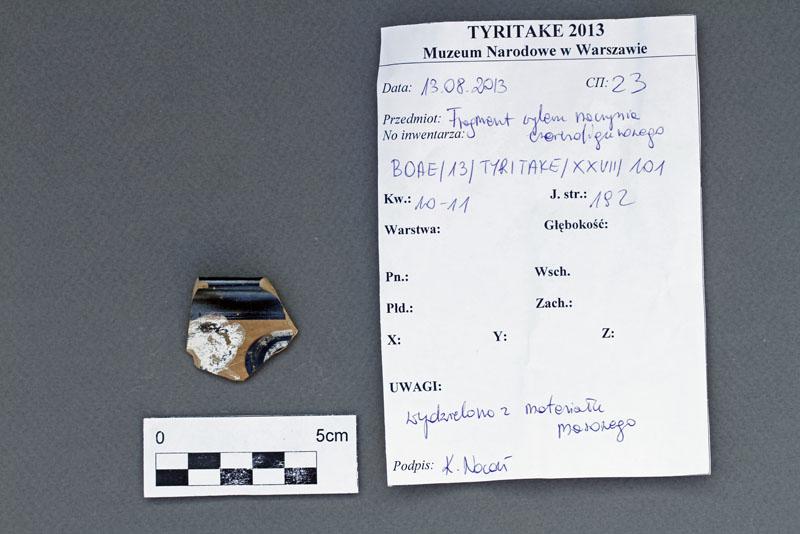 TYRITAKE 2013
Muzeum Narodowe w Warszawie
Data: 13.08.2013 СП: 23
Przedmiot: Fragment wylewu naczynia
No inwentarza: czarnofigurowego
BOAE/13/TYRITAKE/XXVIII/101
Kw.: 10-11 J. str.: 192
Warstwa: Głębokość:
Pn.: Wsch.
Płd.: Zach.:
X: Y: Z:
UWAGI:
wydzielono z materiału
masowego
Podpis: K.
0 5cm